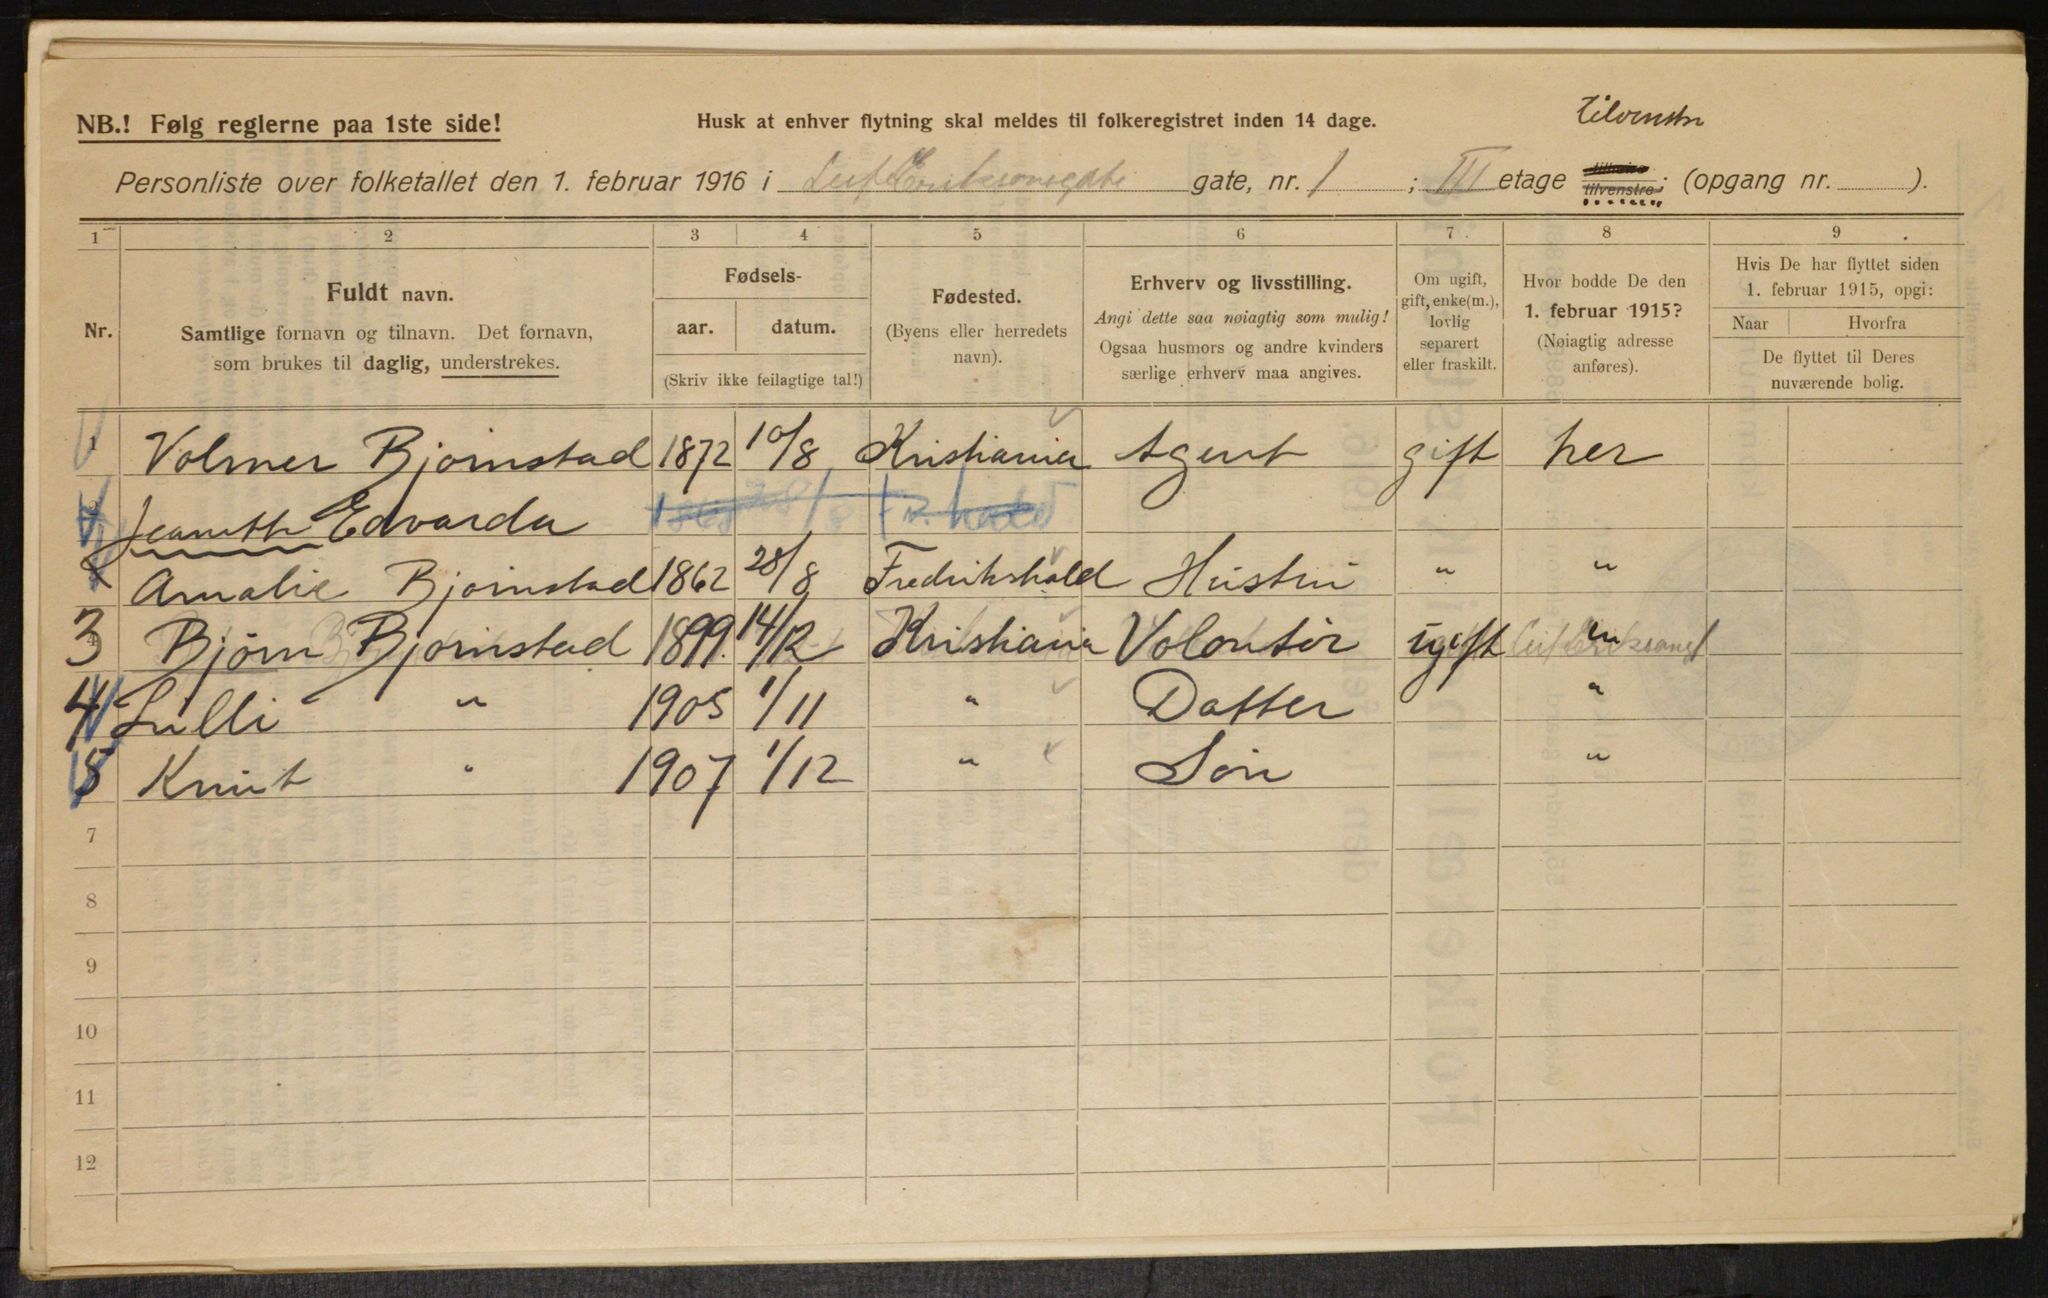 tilvenstre
NB.! Følg reglerne paa 1ste side! Husk at enhver flytning skal meldes til folkeregistret inden 14 dage.
Personliste over folketallet den 1. februar 1916 i Leif Eriksonsgate gate, nr. 1 ; III etage tilhøire tilvenstre; (opgang nr. ).
1 2 3 4 5 6 7 8 9
Nr.
Fuldt navn.
Samtlige fornavn og tilnavn. Det fornavn,
som brukes til daglig, understrekes.
Fødsels-
aar. datum.
(Skriv ikke feilagtige tal!)
Fødested.
(Byens eller herredets
navn).
Erhverv og livsstilling.
Angi dette saa nøiagtig som mulig!
Ogsaa husmors og andre kvinders
særlige erhverv maa angives.
Om ugift,
gift, enke(m.),
lovlig
separert
eller fraskilt.
Hvor bodde De den
1. februar 1915?
(Nøiagtig adresse
anføres).
Hvis De har flyttet siden
1. februar 1915, opgi:
Naar Hvorfra
De flyttet til Deres
nuværende bolig.
1 Volmer Bjørnstad 1872 10/8 Kristiania Agent gift her
Jeanette Edvarda Fr.hald
2 Amalie Bjornstad 1862 28/8 Fredrikshald Hustru " "
3 Bjørn Bjornstad 1899. 14/12 Kristiania Volontør ugift "
4 Lilli " 1905 1/11 " Datter "
5 Knut " 1907 1/12 " Søn "
7
8
9
10
11
12